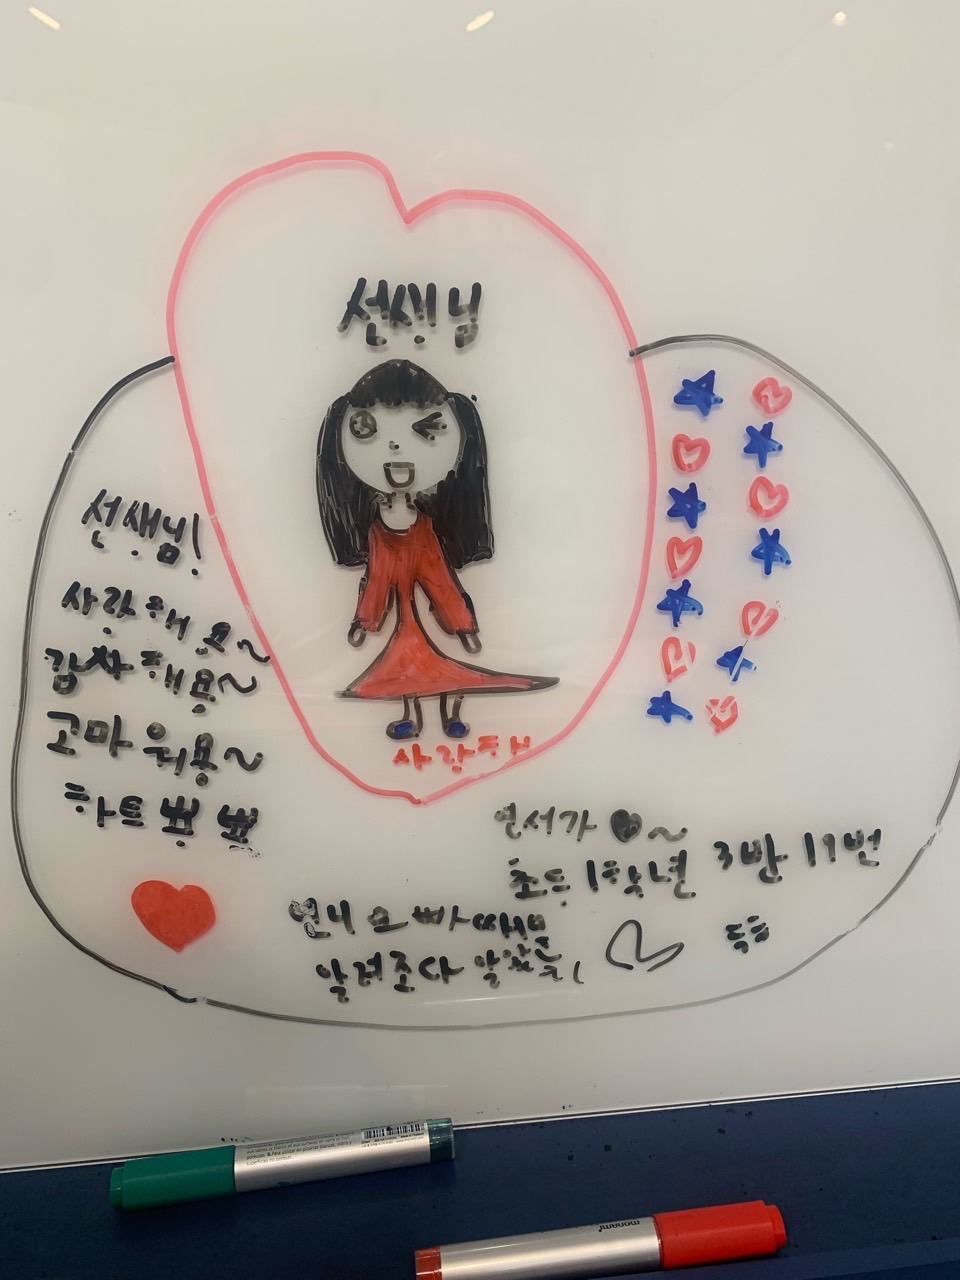 선생님
선생님!
사랑해요~
감사해용~
고마워용~
하트뿅뿅
사랑해
연서가 ♥~
초등 1학년 3반 11번
오빠 때문
알려조다
monami